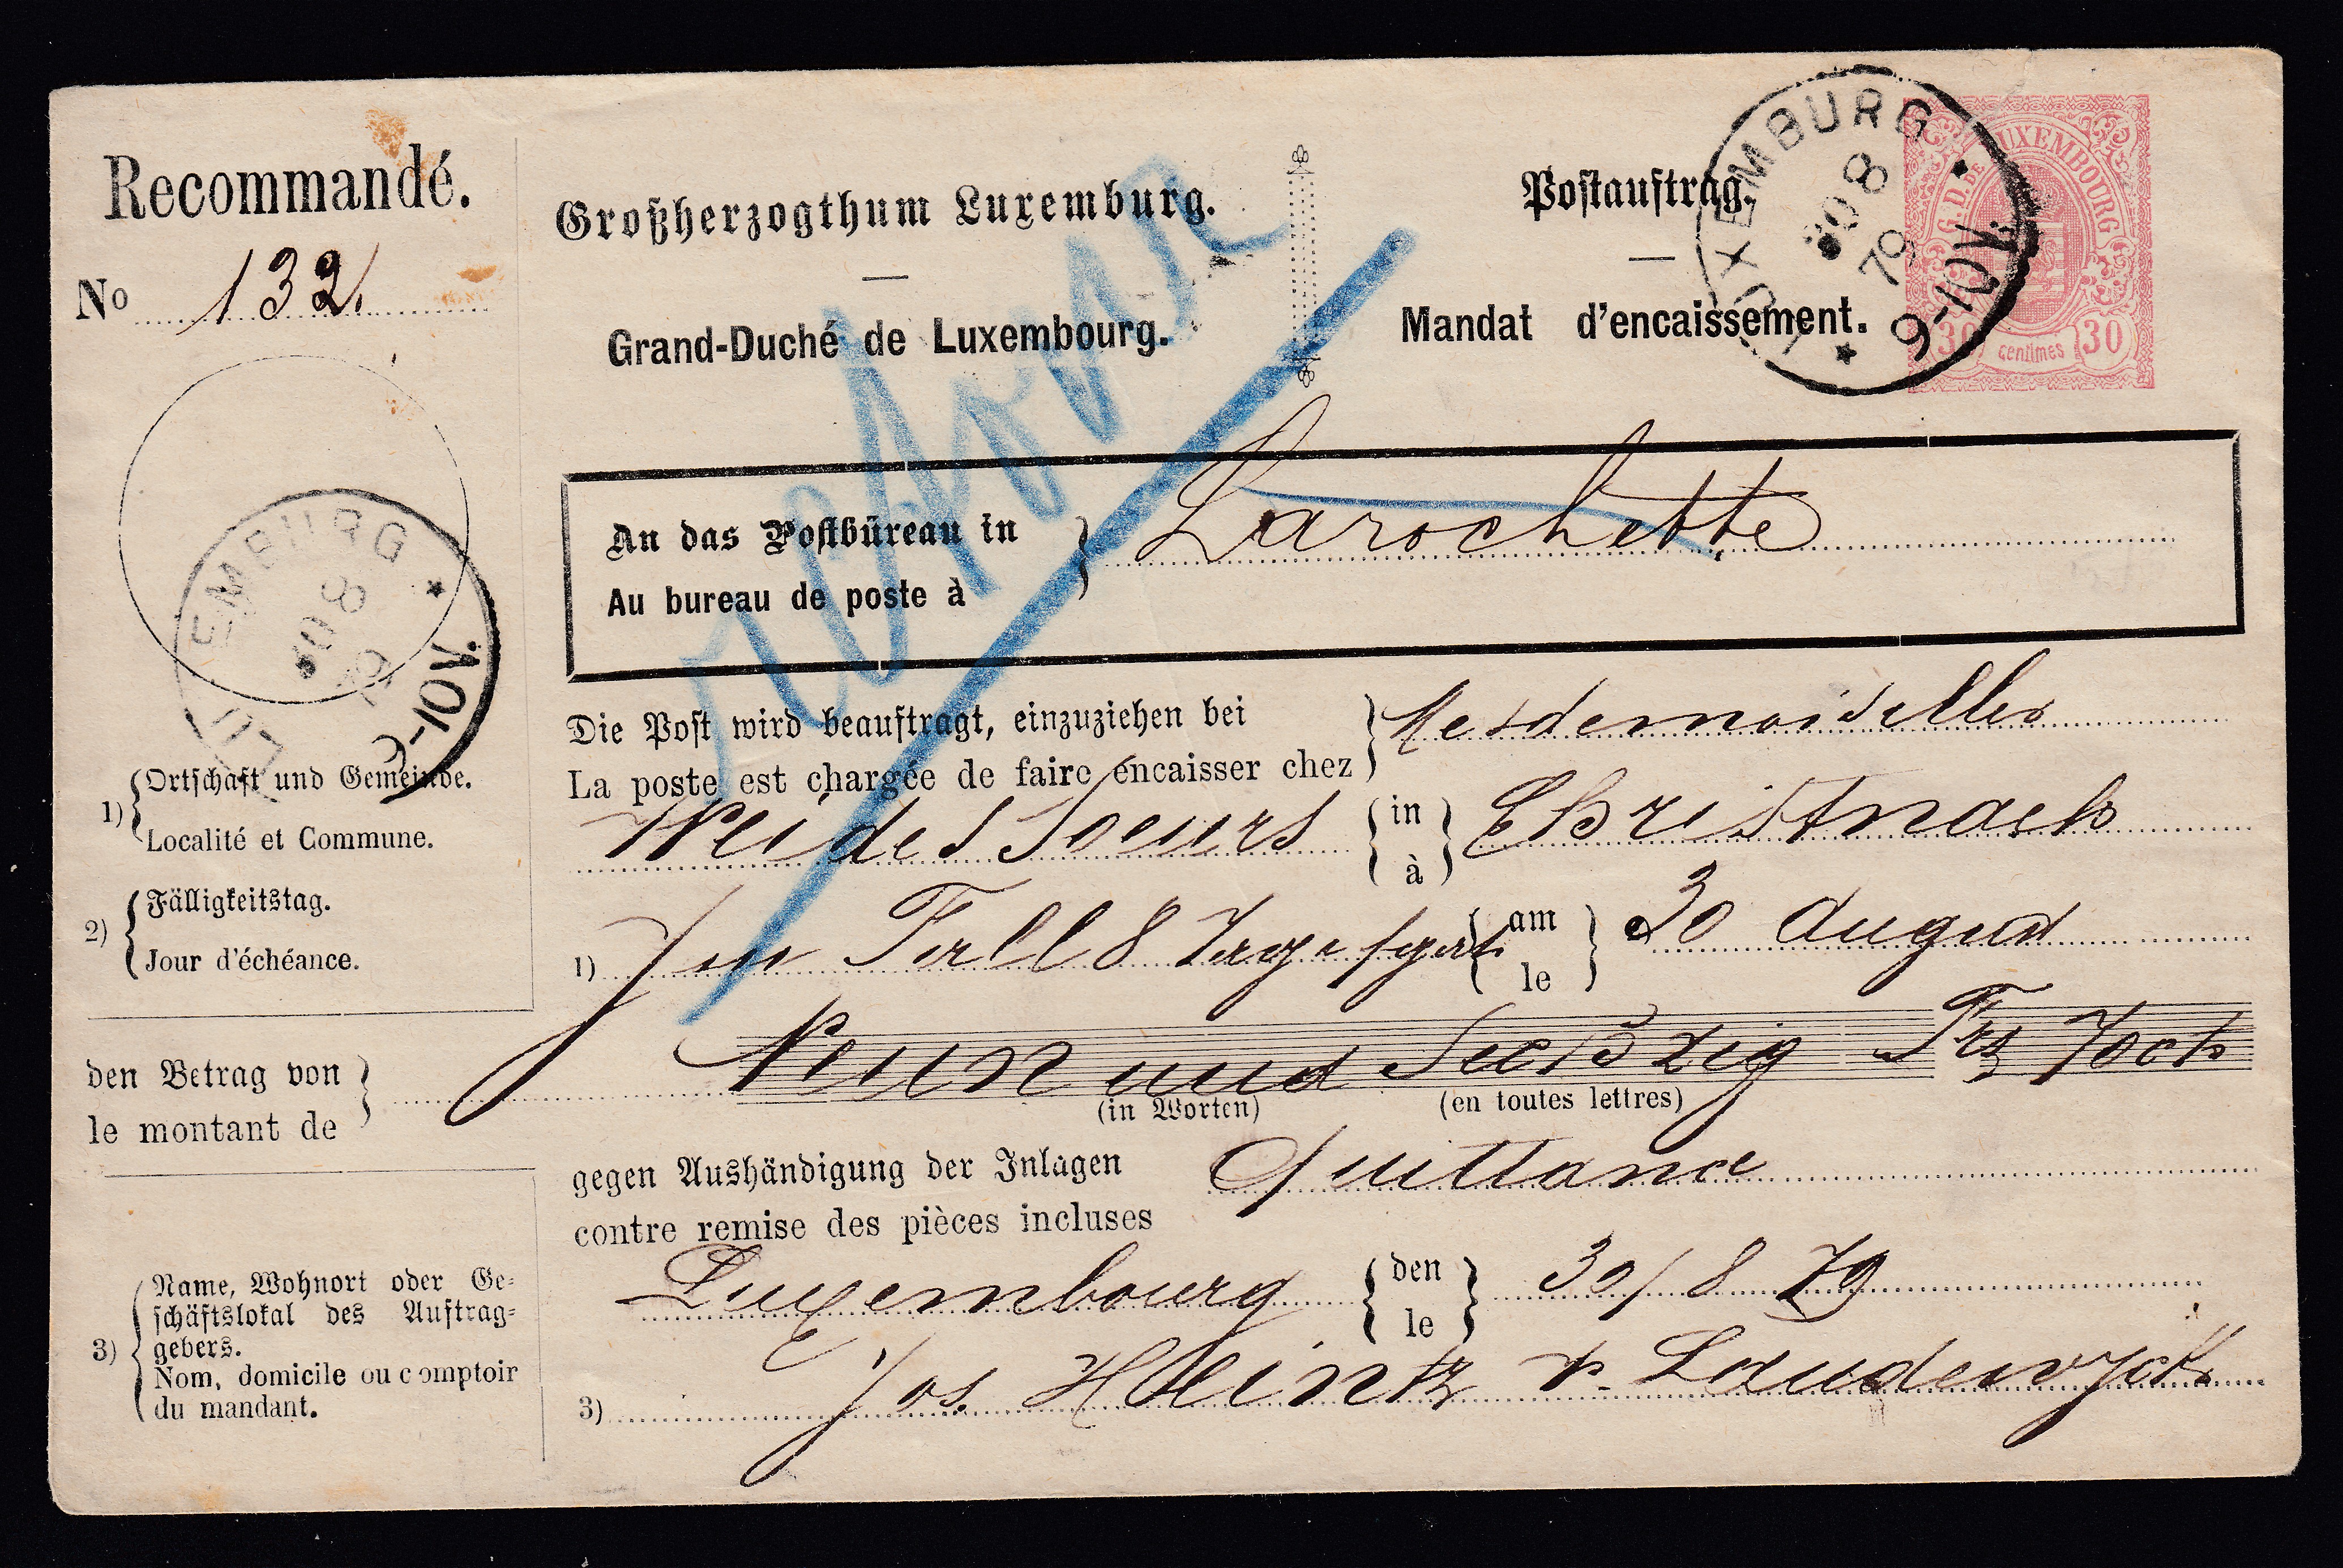 Recommandé.
No 132
Großherzogthum Luxemburg.
Grand-Duché de Luxembourg.
Postauftrag.
Mandat d'encaissement.
G. D. DE LUXEMBOURG
30 centimes 30
LUXEMBURG
30 8
79
9-10V.
retour
An das Postbüreau in
Au bureau de poste à
Larochette
LUXEMBURG
30 8
79
9-10V.
1) Ortschaft und Gemeinde.
Localité et Commune.
2) Fälligkeitstag.
Jour d'échéance.
Die Post wird beauftragt, einzuziehen bei
La poste est chargée de faire encaisser chez
Mesdemoiselles
Weides Soeurs in à Christnach
1) Im Fall 8 Tage am le 30 August
den Betrag von
le montant de
Neun und Sechszig Frs
(in Worten) (en toutes lettres)
gegen Aushändigung der Inlagen
contre remise des pièces incluses
Quittance
Luxembourg den le 30/8 79
3) Name, Wohnort oder Ge-
schäftslokal des Auftrag-
gebers.
Nom, domicile ou comptoir
du mandant.
3) Jos. Heintz